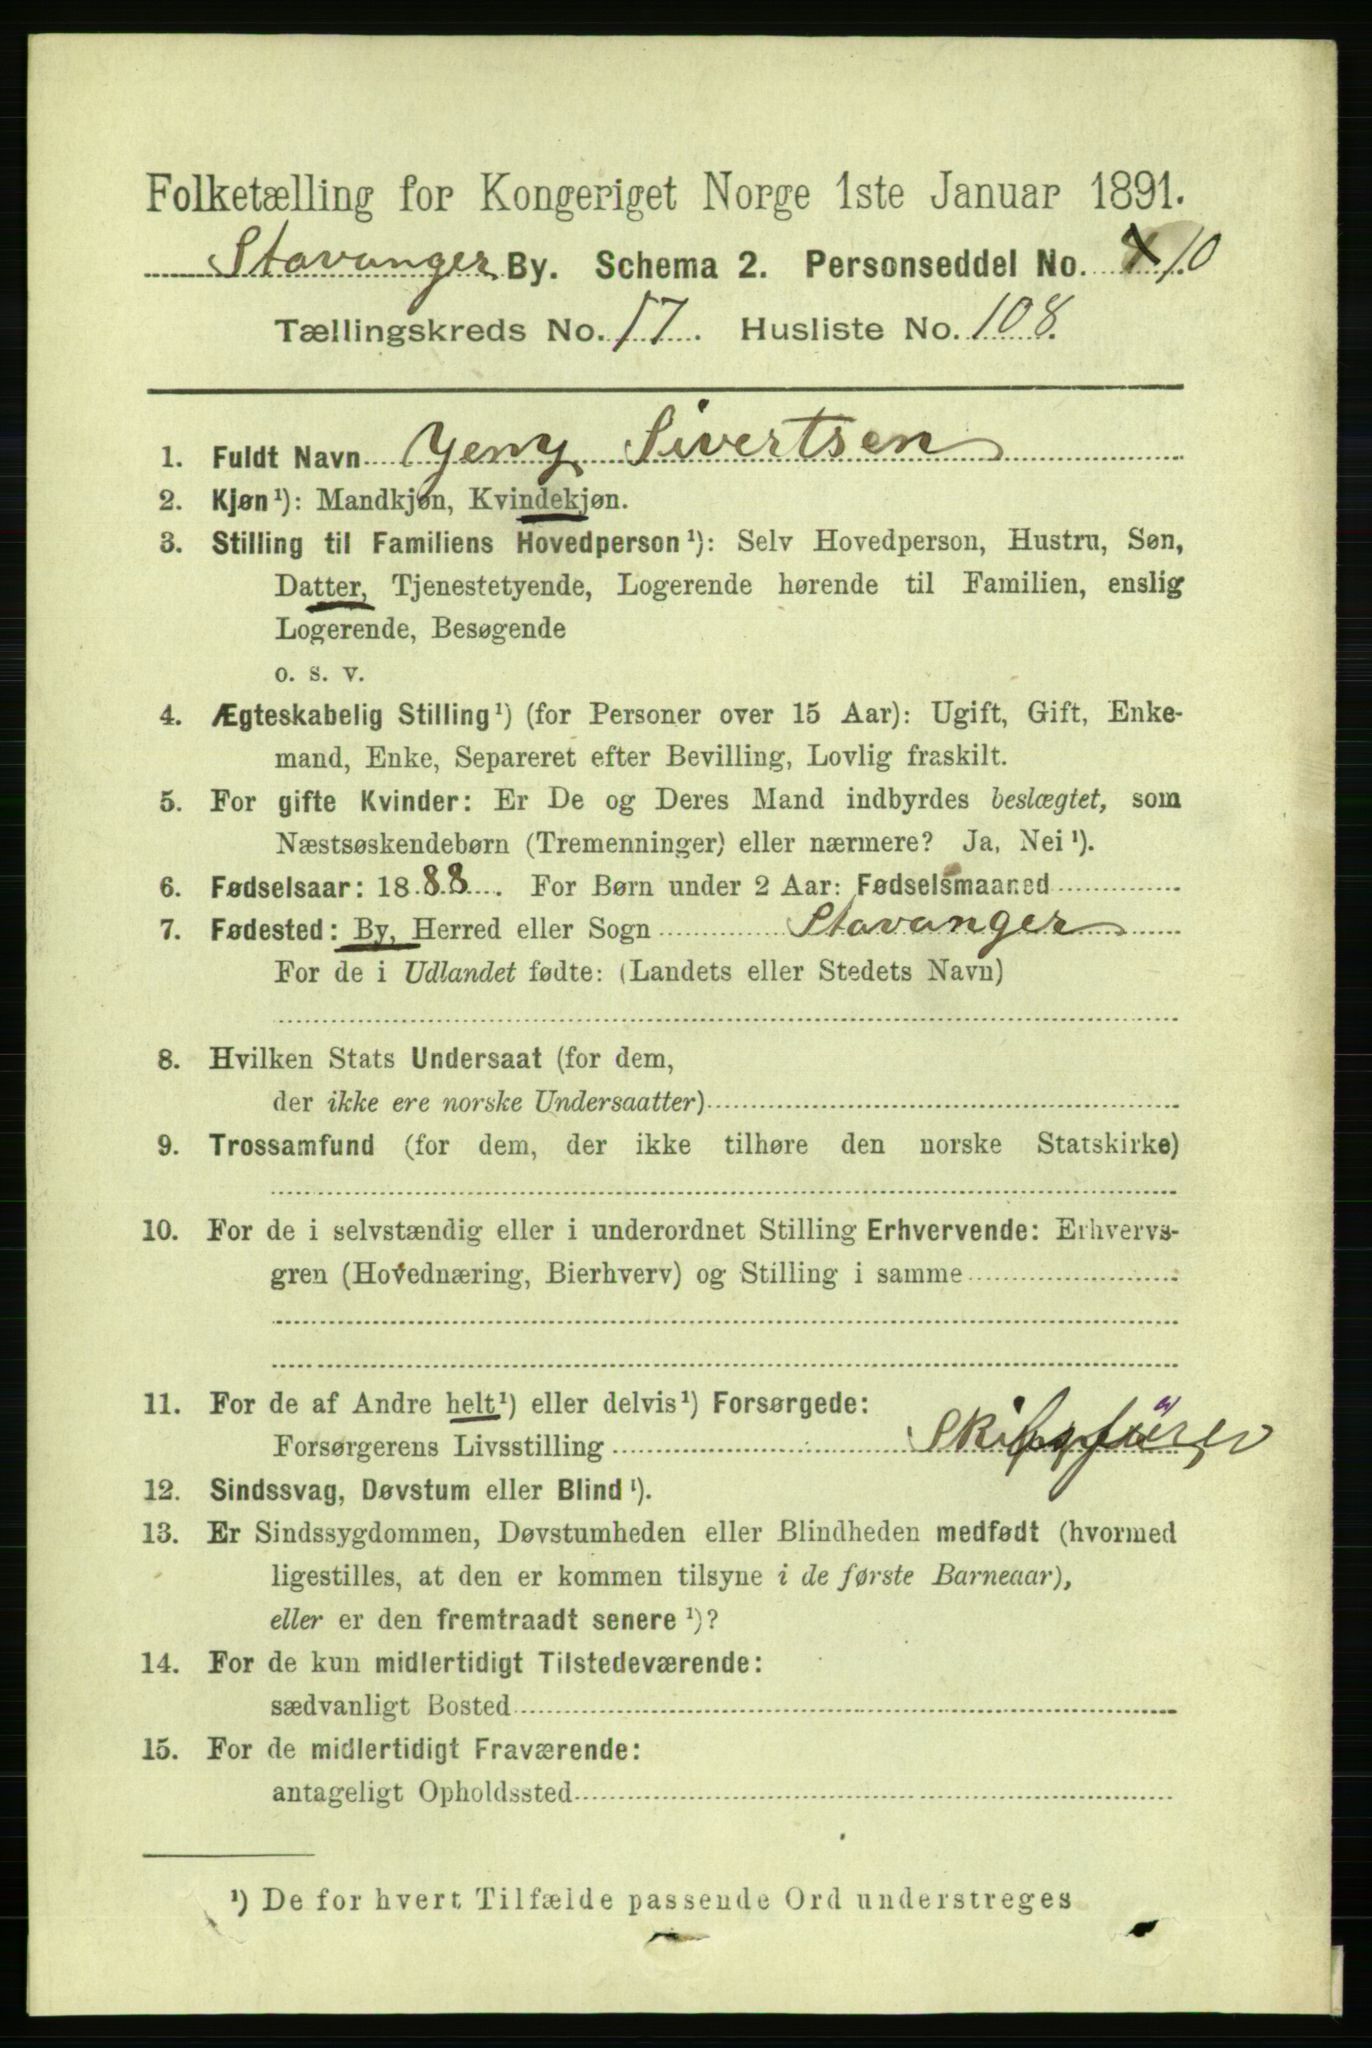 Folketælling for Kongeriget Norge 1ste Januar 1891.
Stavanger By. Schema 2. Personseddel No. 10
Tællingskreds No. 17. Husliste No. 108.
1. Fuldt Navn Yeny Sivertsen
2. Kjøn¹): Mandkjøn, Kvindekjøn.
3. Stilling til Familiens Hovedperson¹): Selv Hovedperson, Hustru, Søn,
Datter, Tjenestetyende, Logerende hørende til Familien, enslig
Logerende, Besøgende
o. s. v.
4. Ægteskabelig Stilling¹) (for Personer over 15 Aar): Ugift, Gift, Enke-
mand, Enke, Separeret efter Bevilling, Lovlig fraskilt.
5. For gifte Kvinder: Er De og Deres Mand indbyrdes beslægtet, som
Næstsøskendebørn (Tremenninger) eller nærmere? Ja, Nei¹).
6. Fødselsaar: 1888. For Børn under 2 Aar: Fødselsmaaned
7. Fødested: By, Herred eller Sogn Stavanger
For de i Udlandet fødte: (Landets eller Stedets Navn)
8. Hvilken Stats Undersaat (for dem,
der ikke ere norske Undersaatter)
9. Trossamfund (for dem, der ikke tilhøre den norske Statskirke)
10. For de i selvstændig eller i underordnet Stilling Erhvervende: Erhvervs-
gren (Hovednæring, Bierhverv) og Stilling i samme
11. For de af Andre helt¹) eller delvis¹) Forsørgede:
Forsørgerens Livsstilling Skipsfürer
12. Sindssvag, Døvstum eller Blind¹).
13. Er Sindssygdommen, Døvstumheden eller Blindheden medfødt (hvormed
ligestilles, at den er kommen tilsyne i de første Barneaar),
eller er den fremtraadt senere¹)?
14. For de kun midlertidigt Tilstedeværende:
sædvanligt Bosted
15. For de midlertidigt Fraværende:
antageligt Opholdssted
¹) De for hvert Tilfælde passende Ord understreges